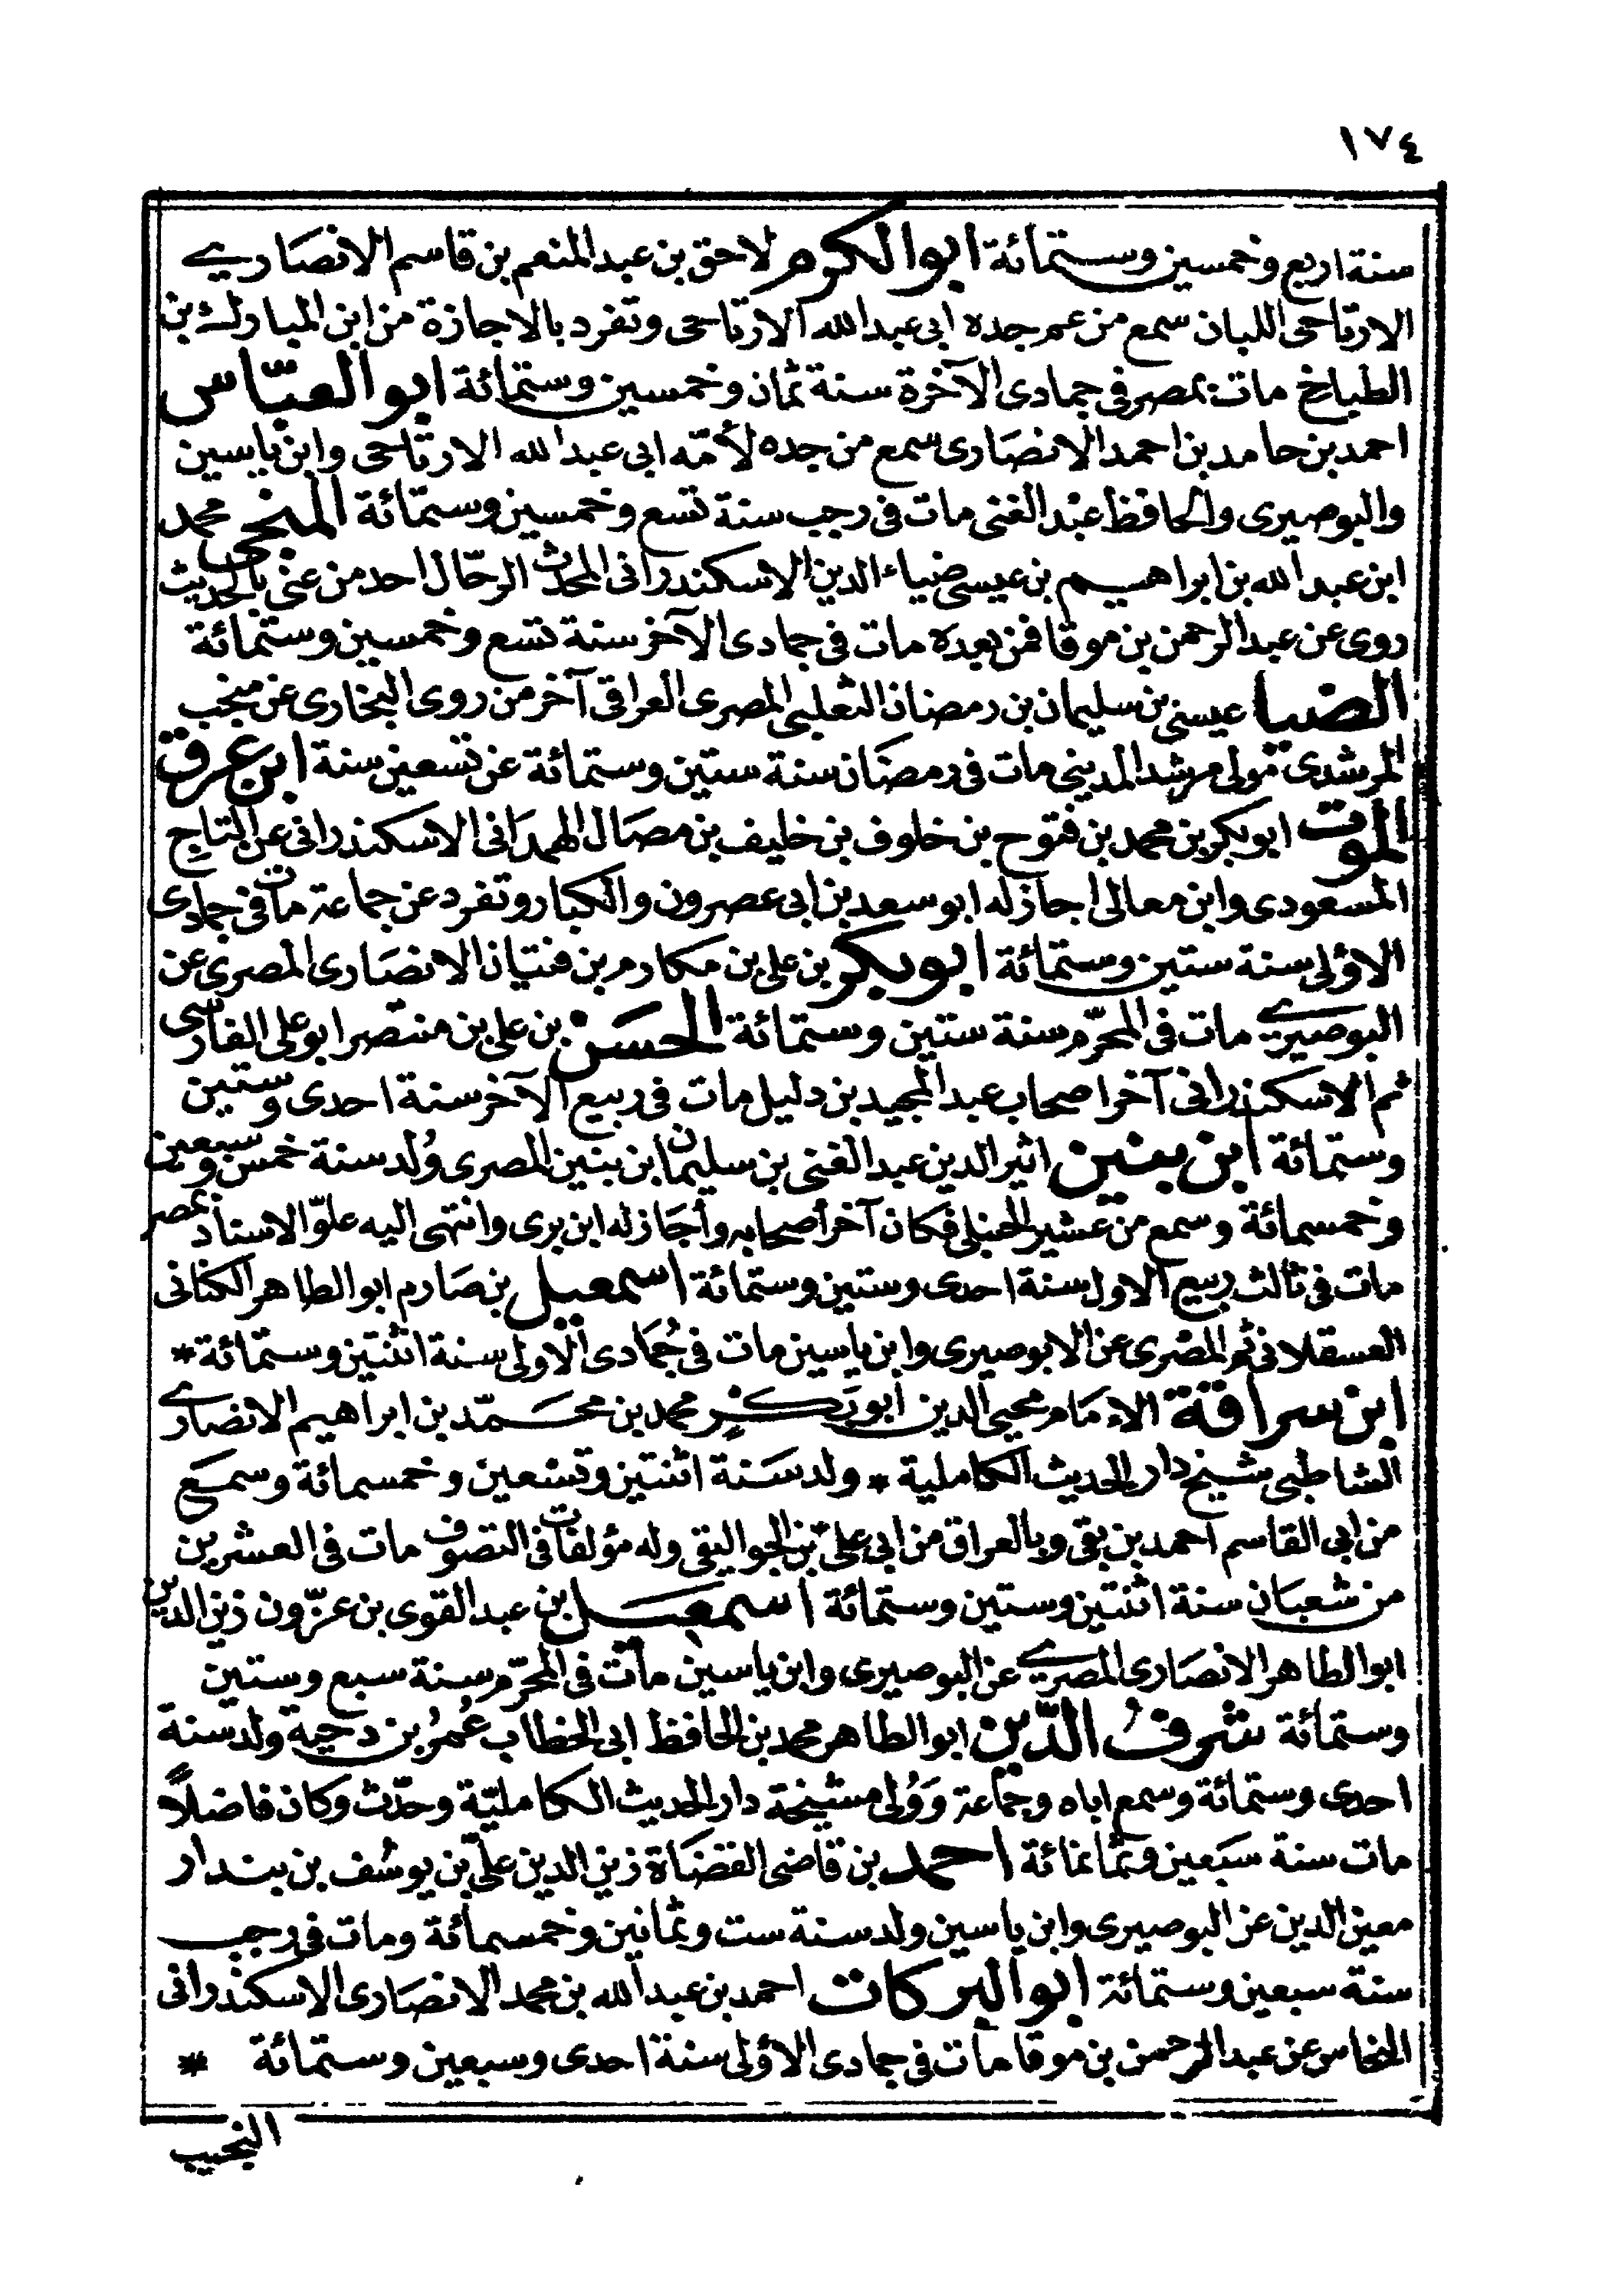 ١٧٤
سنة اربع وخمسين وستمائة ابو الكرم لاحق بن عبد المنعم بن قاسم الانصاري
الارتاحى اللبان سمع من عم جده ابى عبد الله الارتاحى وتفرد بالاجازة من ابن المبارك بن
الطباخ مات بمصر فى جمادى الآخرة سنة ثمان وخمسين وستمائة ابو العبّاس
احمد بن حامد بن احمد الانصارى سمع من جده لأمّه ابى عبد الله الارتاحى وابن ياسين
والبوصيرى والحافظ عبد الغنى مات فى رجب سنة تسع وخمسين وستمائة المنجى محمد
ابن عبد الله بن ابراهيم بن عيسى ضياء الدين الاسكندرانى المحدث الرحّال احد من عنى بالحديث
روى عن عبد الرحمن بن موقا فمن بعده مات فى جمادى الآخر سنة تسع وخمسين وستمائة
الضيا عيسى بن سليمان بن رمضان الثعلبى المصرى العراقى آخر من روى البخارى عن منجب
المرشدى مولى مرشد المدينى مات فى رمضان سنة ستين وستمائة عن تسعين سنة ابن عرق
الموت ابو بكر بن محمد بن فتوح بن خلوف بن خليف بن مصال الهمدانى الاسكندرانى عن التاج
المسعودى وابن معالى اجاز له ابو سعد بن ابى عصرون والكبار وتفرد عن جماعة مات فى جمادى
الاولى سنة ستين وستمائة ابو بكر بن على بن مكارم بن فتيان الانصارى المصرى عن
البوصيري مات فى المحرّم سنة ستين وستمائة الحسن بن على بن منتصر ابو على الفارسى
ثم الاسكندرانى آخر اصحاب عبد المجيد بن دليل مات فى ربيع الآخر سنة احدى وستين
وستمائة ابن بنين اثير الدين عبد الغنى بن سليمان ابن بنين المصرى وُلد سنة خمس وسبعين
وخمسمائة وسمع من عشير الحنبلى فكان آخر أصحابه وأجاز له ابن برى وانتهى اليه علوّ الاسناد بمصر
مات فى ثالث ربيع الاول سنة احدى وستين وستمائة اسمعيل بن صارم ابو الطاهر الكنانى
العسقلانى ثم المصرى عن الابوصيرى وابن ياسين مات فى جُمادى الاولى سنة اثنتين وستمائة *
ابن سراقة الامام محيى الدين ابو بكر محمد بن محمّد بن ابراهيم الانصاري
الشاطبى شيخ دار الحديث الكاملية * ولد سنة اثنتين وتسعين وخمسمائة وسمع
من ابى القاسم احمد بن بقى وبالعراق من ابى على بن الجواليقى وله مؤلفات فى التصوف مات فى العشرين
من شعبان سنة اثنتين وستين وستمائة اسمعيل بن عبد القوى بن عزّون زين الدين
ابو الطاهر الانصارى المصري عن البوصيرى وابن ياسين مات فى المحرّم سنة سبع وستين
وستمائة شرفُ الدّين ابو الطاهر محمد بن الحافظ ابى الخطاب عُمرُ بن دحية ولد سنة
احدى وستمائة وسمع اباه وجماعة وَوُلى مشيخة دار الحديث الكامليّة وحدّث وكان فاضلاً
مات سنة سبعين وثمانمائة احمد بن قاضى القضاة زين الدين علىّ بن يوسُف بن بندار
معين الدين عن البوصيرى وابن ياسين ولد سنة ست وثمانين وخمسمائة ومات فى رجب
سنة سبعين وستمائة ابو البركات احمد بن عبد الله بن محمد الانصارى الاسكندرانى
النحاس عن عبد الرحمن بن موقا مات فى جمادى الاولى سنة احدى وسبعين وستمائة *
النجيب